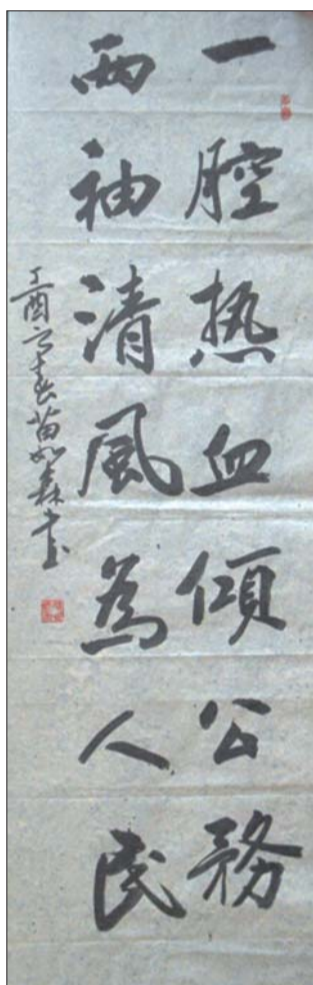 一腔热血傾公務
兩袖清風為人民
丁酉之春苗如森书